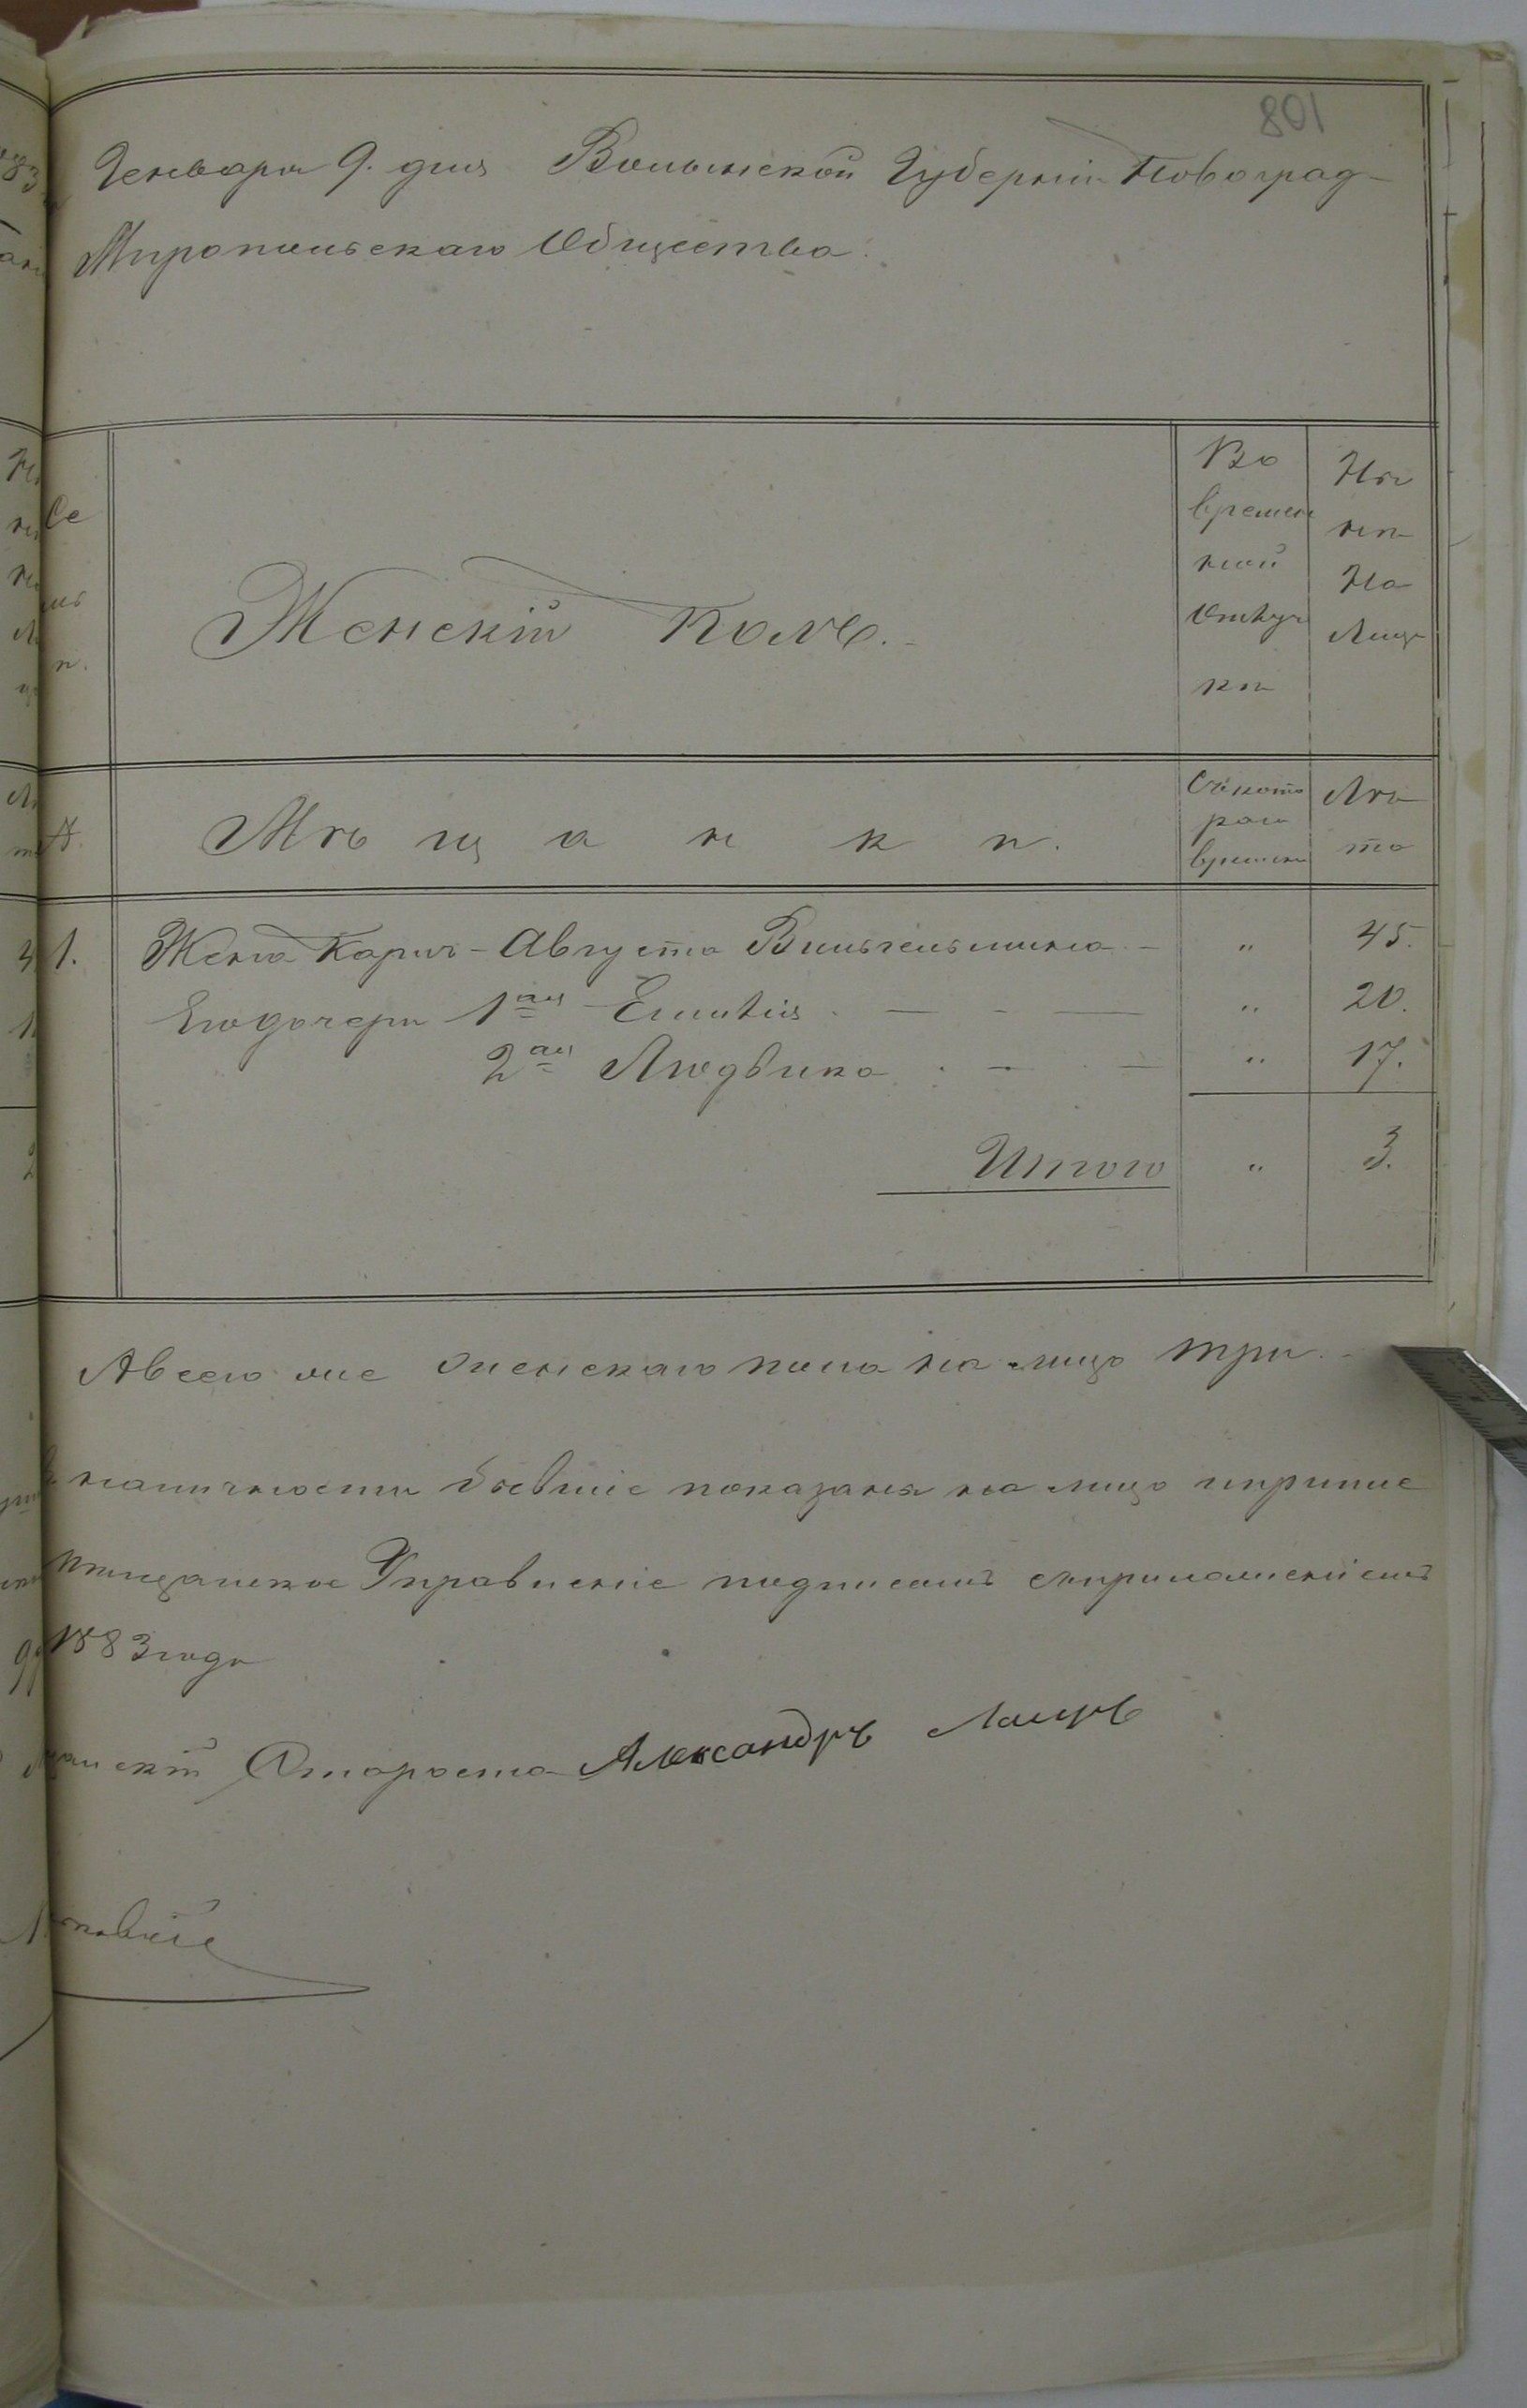 801
Генваря 9. дня Волынской Губерніи Новоград-
Миропольскаго Общества
Се
Женскій полъ.
Во времен ной отлуч ки
Ны нѣ На Лицо
№
Мѣщанки.
Съ кото раго времени
Лѣ та
1. Жена Карла - Августа Вильгельмина - " 45.
Его дочери 1ая Емилія. — - — " 20.
2ая Людвика . — . — " 17.
Итого " 3.
А всего же женскаго пола на лицо три. -
наличности бывшіе показаны на лицо и
Мѣщанское Управленіе подписомъ
1883 года
Староста Александръ